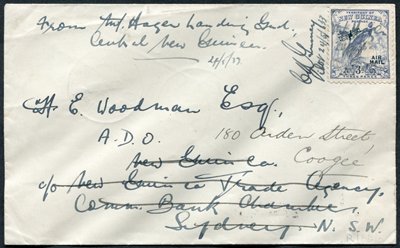 From Mt. Hagen Landing Grd,
Central New Guinea.
24/6/37
TERRITORY OF
NEW GUINEA
AIR
MAIL
E. Woodman Esq,
A.D.O.
180 Arden Street,
Coogee
New Guinea.
c/o New Guinea Trade Agency,
Comm. Bank Chambers,
Sydney. N.S.W.